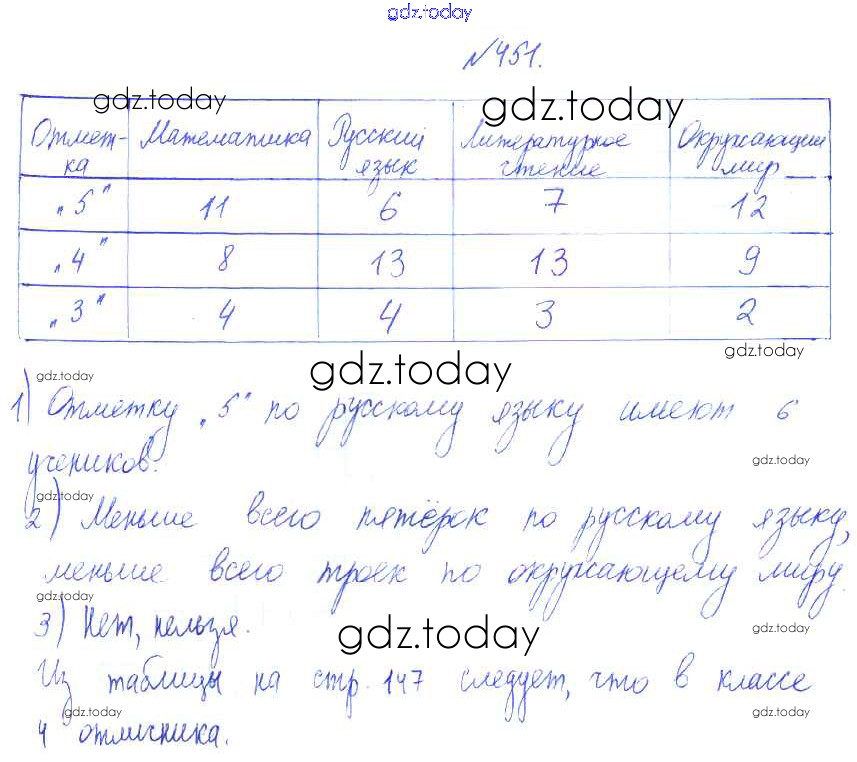 gdz.today
№451.
gdz.today gdz.today
Отмет- Математика Русский Литературное Окружающий
ка язык чтение мир
„5" 11 6 7 12
„4" 8 13 13 9
„3" 4 4 3 2
gdz.today
gdz.today gdz.today
1) Отметку „5" по русскому языку имеют 6
учеников.
gdz.today
gdz.today
2) Меньше всего пятёрок по русскому языку,
меньше всего троек по окружающему миру.
gdz.today
3) Нет, нельзя.
gdz.today gdz.today
Из таблицы на стр. 147 следует, что в классе
gdz.today gdz.today
4 отличника.